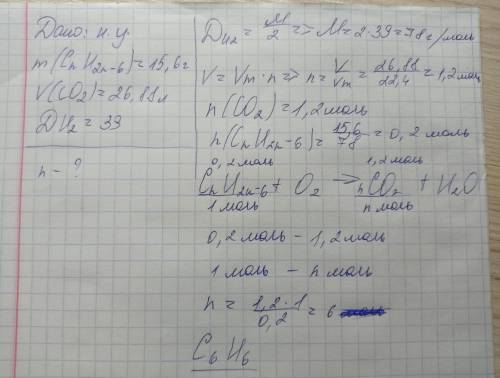 Дано: н.у.
m(CnH2n-6)=15,6г
V(CO2)=26,88л
DH2=39
n - ?
DH2 = M/2 => M=2·39=78г/моль
V=Vm·n=>n=V/Vm=26,88/22,4=1,2моль
n(CO2)=1,2моль
n(CnH2n-6)=15,6/78=0,2 моль
0,2моль 1,2моль
CnH2n-6+ O2 => nCO2 + H2O
1 моль n моль
0,2 моль - 1,2 моль
1 моль - n моль
n = 1,2·1/0,2 = 6
C6H6